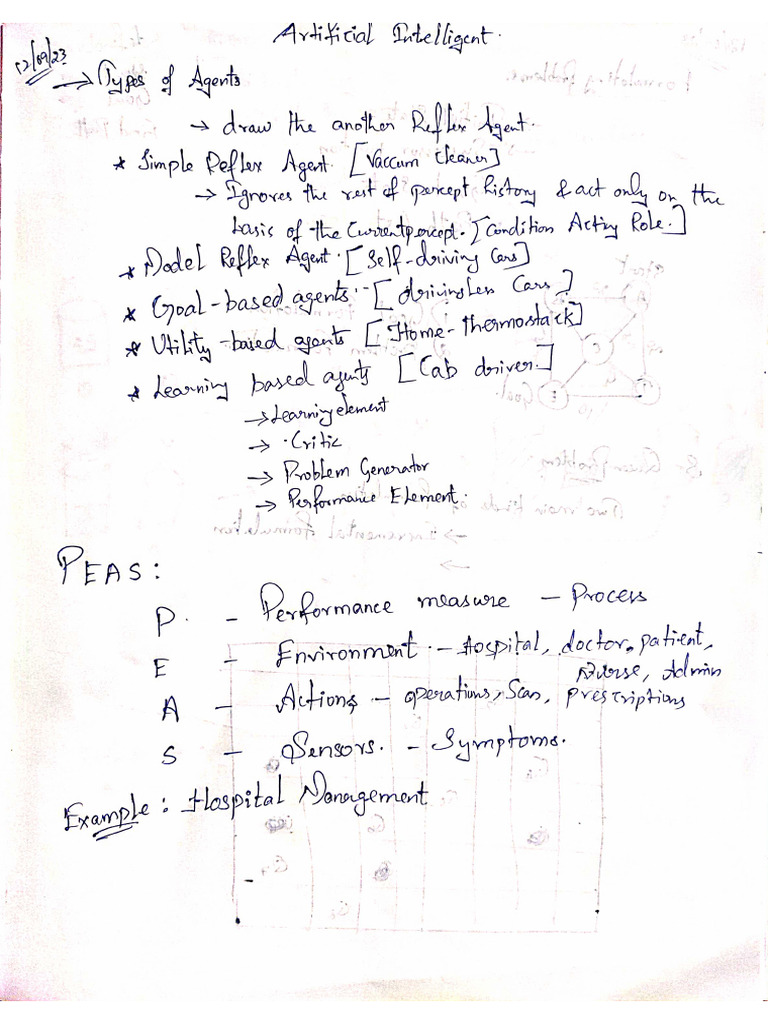 Artificial Intelligent.
12/09/23
→ Types of Agents
→ draw the another Reflex Agent.
* Simple Reflex Agent. [Vaccum cleaner]
→ Ignores the rest of percept history & act only on the
basis of the Current percept. [Condition Acting Role.]
* Model Reflex Agent. [Self-driving Cars]
* Goal-based agents. - [drivinsless Cars]
* Utility-based agents [Home-thermostack]
* Learning based agents [Cab driver.]
→ Learning element
→ Critic
→ Problem Generator
→ Performance Element.
PEAS:
P. - Performance measure - Process
E - Environment. - Hospital, doctor, patient,
Nurse, Admin
A - Actions - operations, Scan, prescriptions
S - Sensors. - Symptoms.
Example: Hospital Management